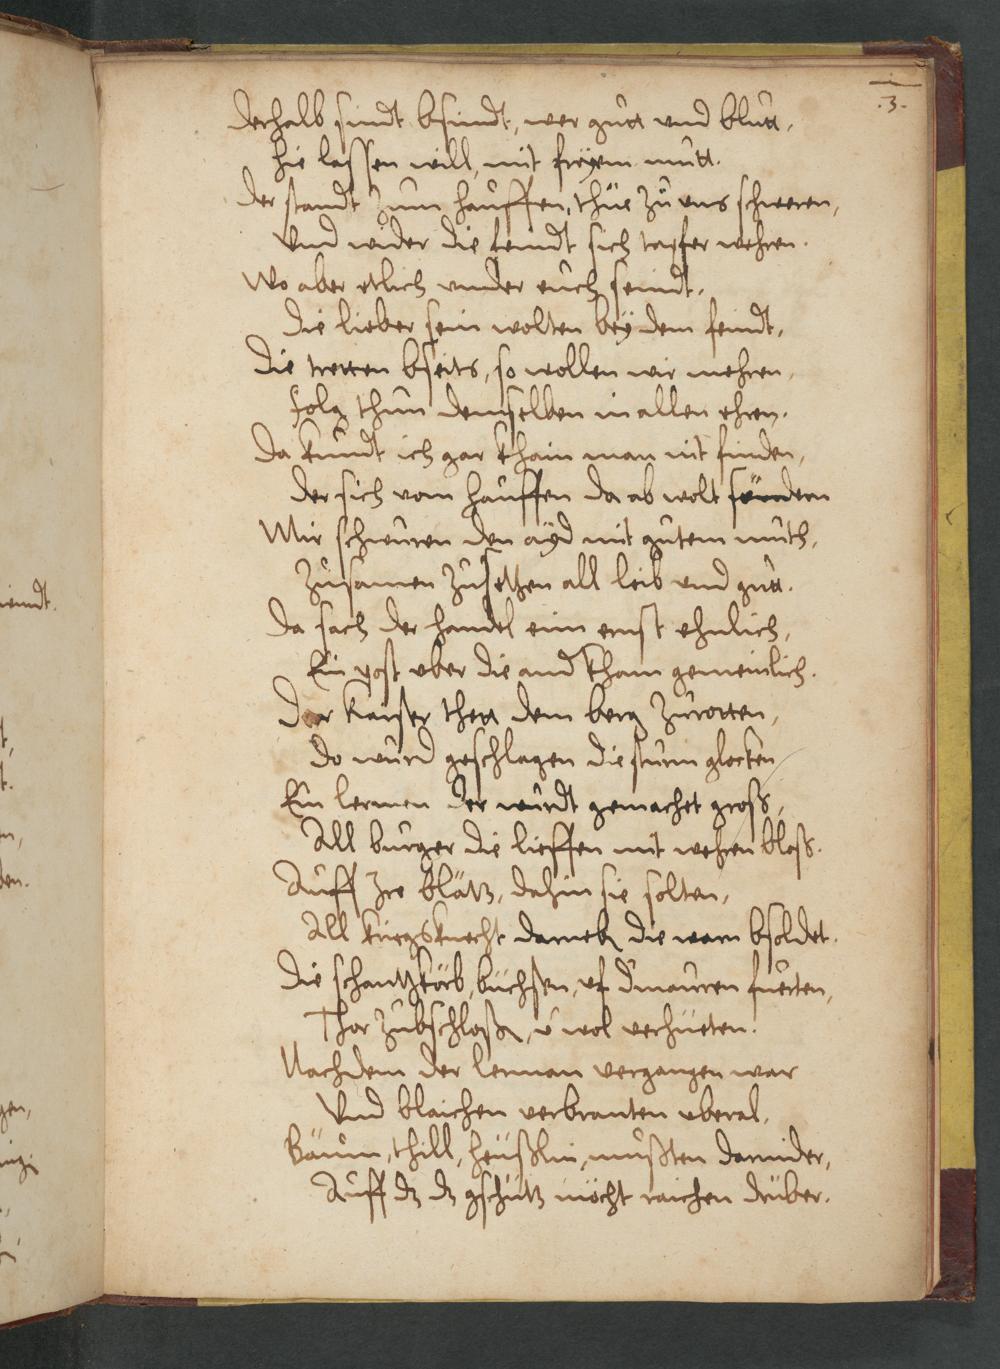 .3.
Derhalb sindt bsindt, wer gutt und blutt,
hie lassen will, mit freyem mutt.
Der standt zum hauffen, thüe zu uns schweren,
Und wider die feindt sich tapfer wehren.
Wo aber etlich under euch seindt,
Die lieber sein wolten bey dem feindt,
Die tretten bseits, so wollen wir mehren,
folg thun demselben in allen ehren.
Da kundt ich gar khain man nit finden,
Der sich vom hauffen da ab wolt
Mir schwuren den ayd mit gutem muth,
Zusamen zusetzen all leib und gutt.
Da sach der handel eim ernst ehnlich,
Ein post uber die and kham gemeinlich.
Der kaiser thett dem berg zurotten,
Do wurd geschlagen die sturm glocken
Ein lermen der wurdt gemachet gross,
All burger die lieffen mit wehren bloss.
Auff Ire blätz, dahin sie solten,
All kriegsknecht darneb die warn bsoldet.
Die schantzkörb, büchsen, uf d'mauren fuerten,
Thor zubschloss, u wol verhüeten.
Nachdem der lerman vergangen war
Und blaichen verbranten uberal,
Bäum, thill, heüsslin, mussten darnider,
Auff dz dz gschütz möcht raichen drüber.